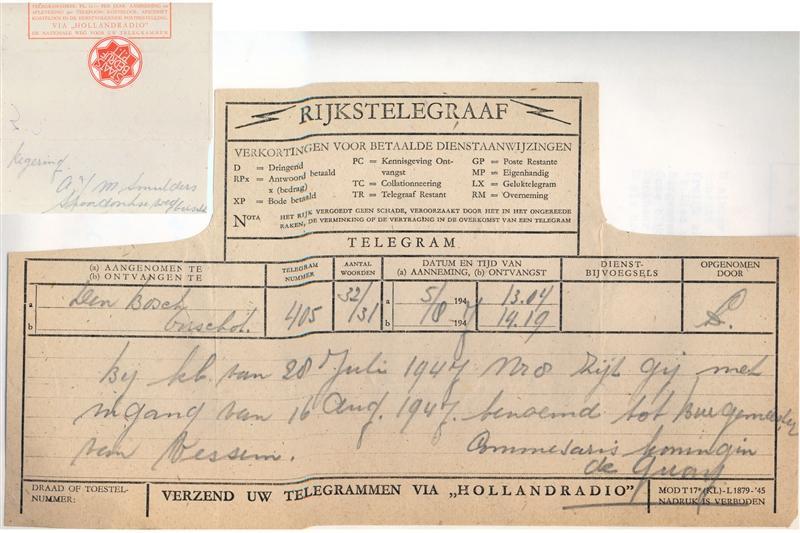 VIA „HOLLANDRADIO"
DE NATIONALE WEG VOOR UW TELEGRAMMEN
Regering
M, Smulders
RIJKSTELEGRAAF
VERKORTINGEN VOOR BETAALDE DIENSTAANWIJZINGEN
D = Dringend
RPx = Antwoord betaald
x (bedrag)
XP = Bode betaald
PC = Kennisgeving Ont-
vangst
TC = Collationneering
TR = Telegraaf Restant
GP = Poste Restante
MP = Eigenhandig
LX = Geluktelegram
RM = Overneming
NOTA HET RIJK VERGOEDT GEEN SCHADE, VEROORZAAKT DOOR HET IN HET ONGEREEDE
RAKEN, DE VERMINKING OF DE VERTRAGING IN DE OVERKOMST VAN EEN TELEGRAM
TELEGRAM
(a) AANGENOMEN TE
(b) ONTVANGEN TE
TELEGRAM
NUMMER
AANTAL
WOORDEN
DATUM EN TIJD VAN
(a) AANNEMING, (b) ONTVANGST
DIENST-
BIJVOEGSELS
OPGENOMEN
DOOR
a Den Bosch 32/ a 5/ 194 13.04
b Oirschot. 405 /31 b /8 1947 14.19
bij kb. van 28 Juli 1947 Nr 8 zijt gij met
ingang van 16 Aug. 1947. benoemd tot Burgemeester
van Vessem. Commesaris koningin
de Quay
DRAAD OF TOESTEL-
NUMMER:
VERZEND UW TELEGRAMMEN VIA „HOLLANDRADIO"
MOD T 17* (KL)-L 1879-'45
NADRUK IS VERBODEN